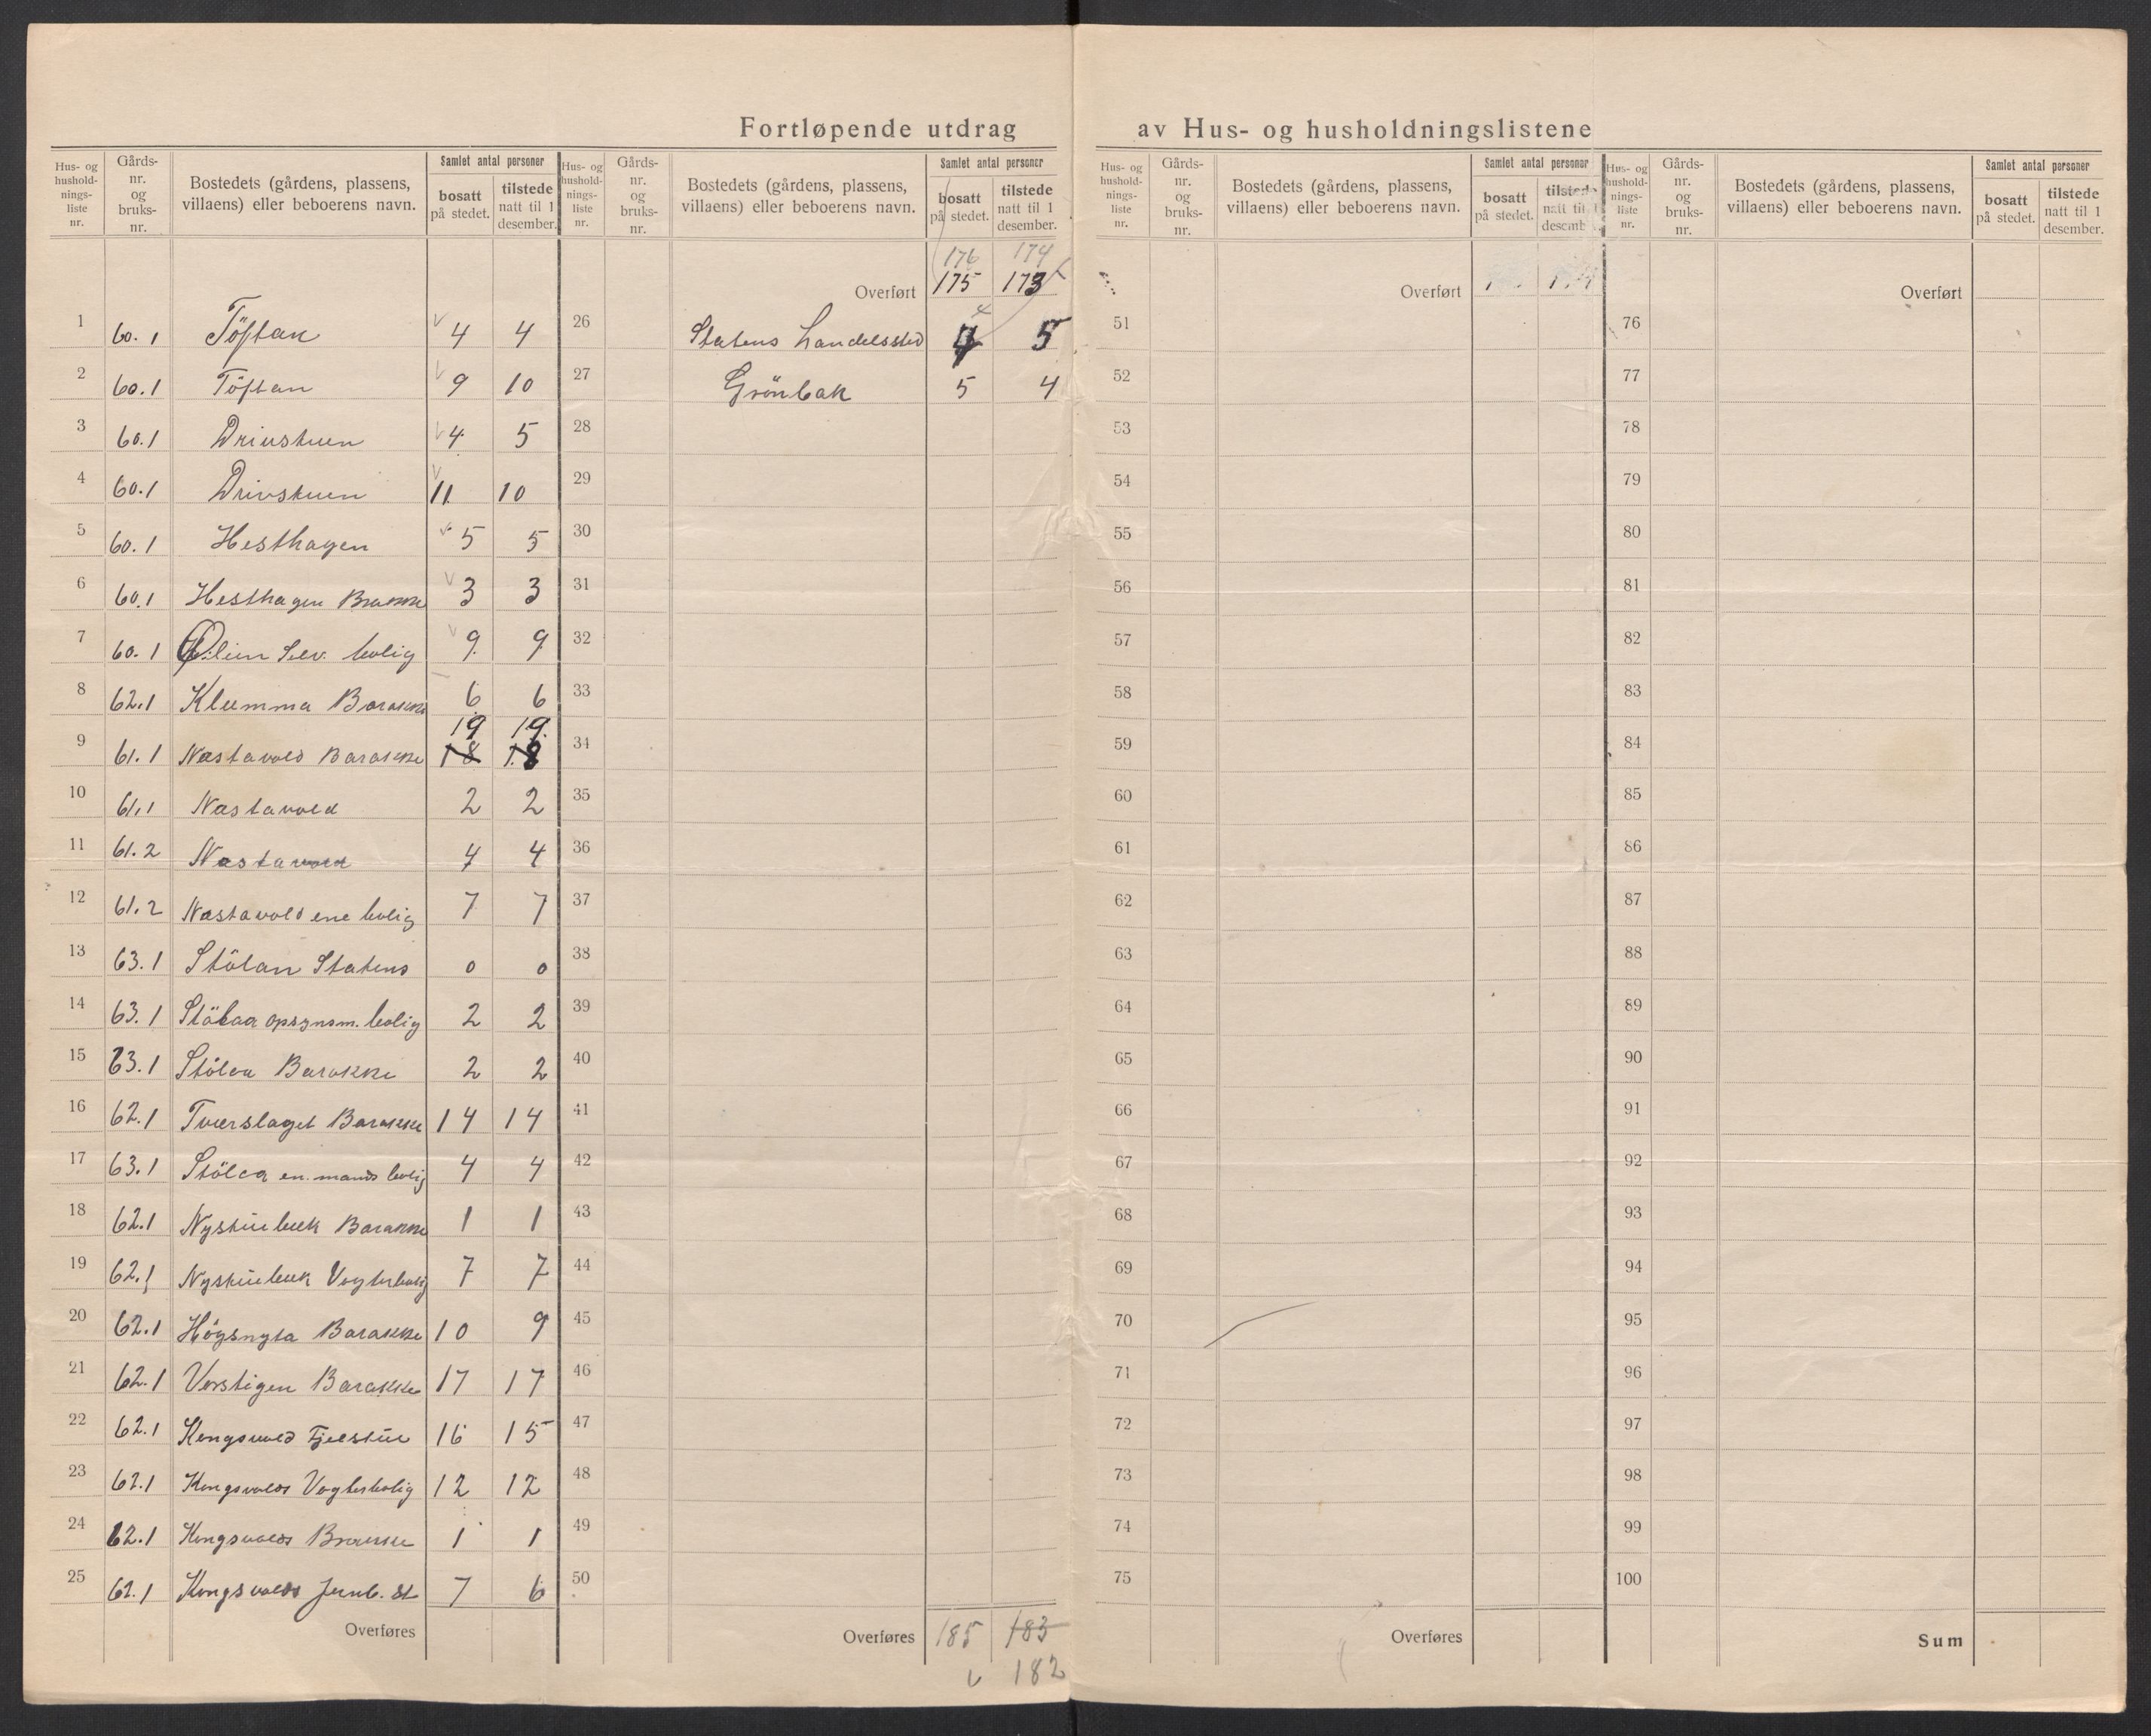 Fortløpende utdrag av Hus- og husholdningslistene
Hus- og hushold-nings-liste nr. Gårds-nr. og bruks-nr. Bostedets (gårdens, plassens, villaens) eller beboerens navn. Samlet antal personer bosatt på stedet. tilstede natt til 1 desember.
1 60.1 Töftan 4 4
2 60.1 Töftan 9 10
3 60.1 Drivstuen 4 5
4 60.1 Drivstuen 11 10
5 60.1 Hesthagen 5 5
6 60.1 Hesthagen Brakke 3 3
7 60.1 bolig 9 9
8 62.1 Klemma Barakke 6 6
19 19
9 61.1 Næstavold Barakke 18 18
10 61.1 Næstavold 2 2
11 61.2 Næstavold 4 4
12 61.2 Næstavold ene bolig 7 7
13 63.1 Stölan Statens 0 0
14 63.1 Stölaa opsynsm. bolig 2 2
15 63.1 Stölaa Barakke 2 2
16 62.1 Tværslaget Barakke 14 14
17 63.1 Stölaa en.mands bolig 4 4
18 62.1 Nystubæk Barakke 1 1
19 62.1 Nystubæk Vogterbolig 7 7
20 62.1 Högsnyta Barakke 10 9
21 62.1 Vorstigen Barakke 17 17
22 62.1 Kongsvold Fjelstue 16 15
23 62.1 Kongsvolds Vogterbolig 12 12
24 62.1 Kongsvolds 1 1
25 62.1 Kongsvolds Jernb. st 7 6
Overføres
Hus- og hushold-nings-liste nr. Gårds-nr. og bruks-nr. Bostedets (gårdens, plassens, villaens) eller beboerens navn. Samlet antal personer bosatt på stedet. tilstede natt til 1 desember.
176 174
Overført 175 173
26 Statens Landelssted 4 5
27 Grönbak 5 4
28
29
30
31
32
33
34
35
36
37
38
39
40
41
42
43
44
45
46
47
48
49
50
Overføres 185 183
182
Hus- og hushold-nings-liste nr. Gårds-nr. og bruks-nr. Bostedets (gårdens, plassens, villaens) eller beboerens navn. Samlet antal personer bosatt på stedet. tilstede natt til 1 desember.
Overført
51
52
53
54
55
56
57
58
59
60
61
62
63
64
65
66
67
68
69
70
71
72
73
74
75
Overføres
Hus- og hushold-nings-liste nr. Gårds-nr. og bruks-nr. Bostedets (gårdens, plassens, villaens) eller beboerens navn. Samlet antal personer bosatt på stedet. tilstede natt til 1 desember.
Overført
76
77
78
79
80
81
82
83
84
85
86
87
88
89
90
91
92
93
94
95
96
97
98
99
100
Sum